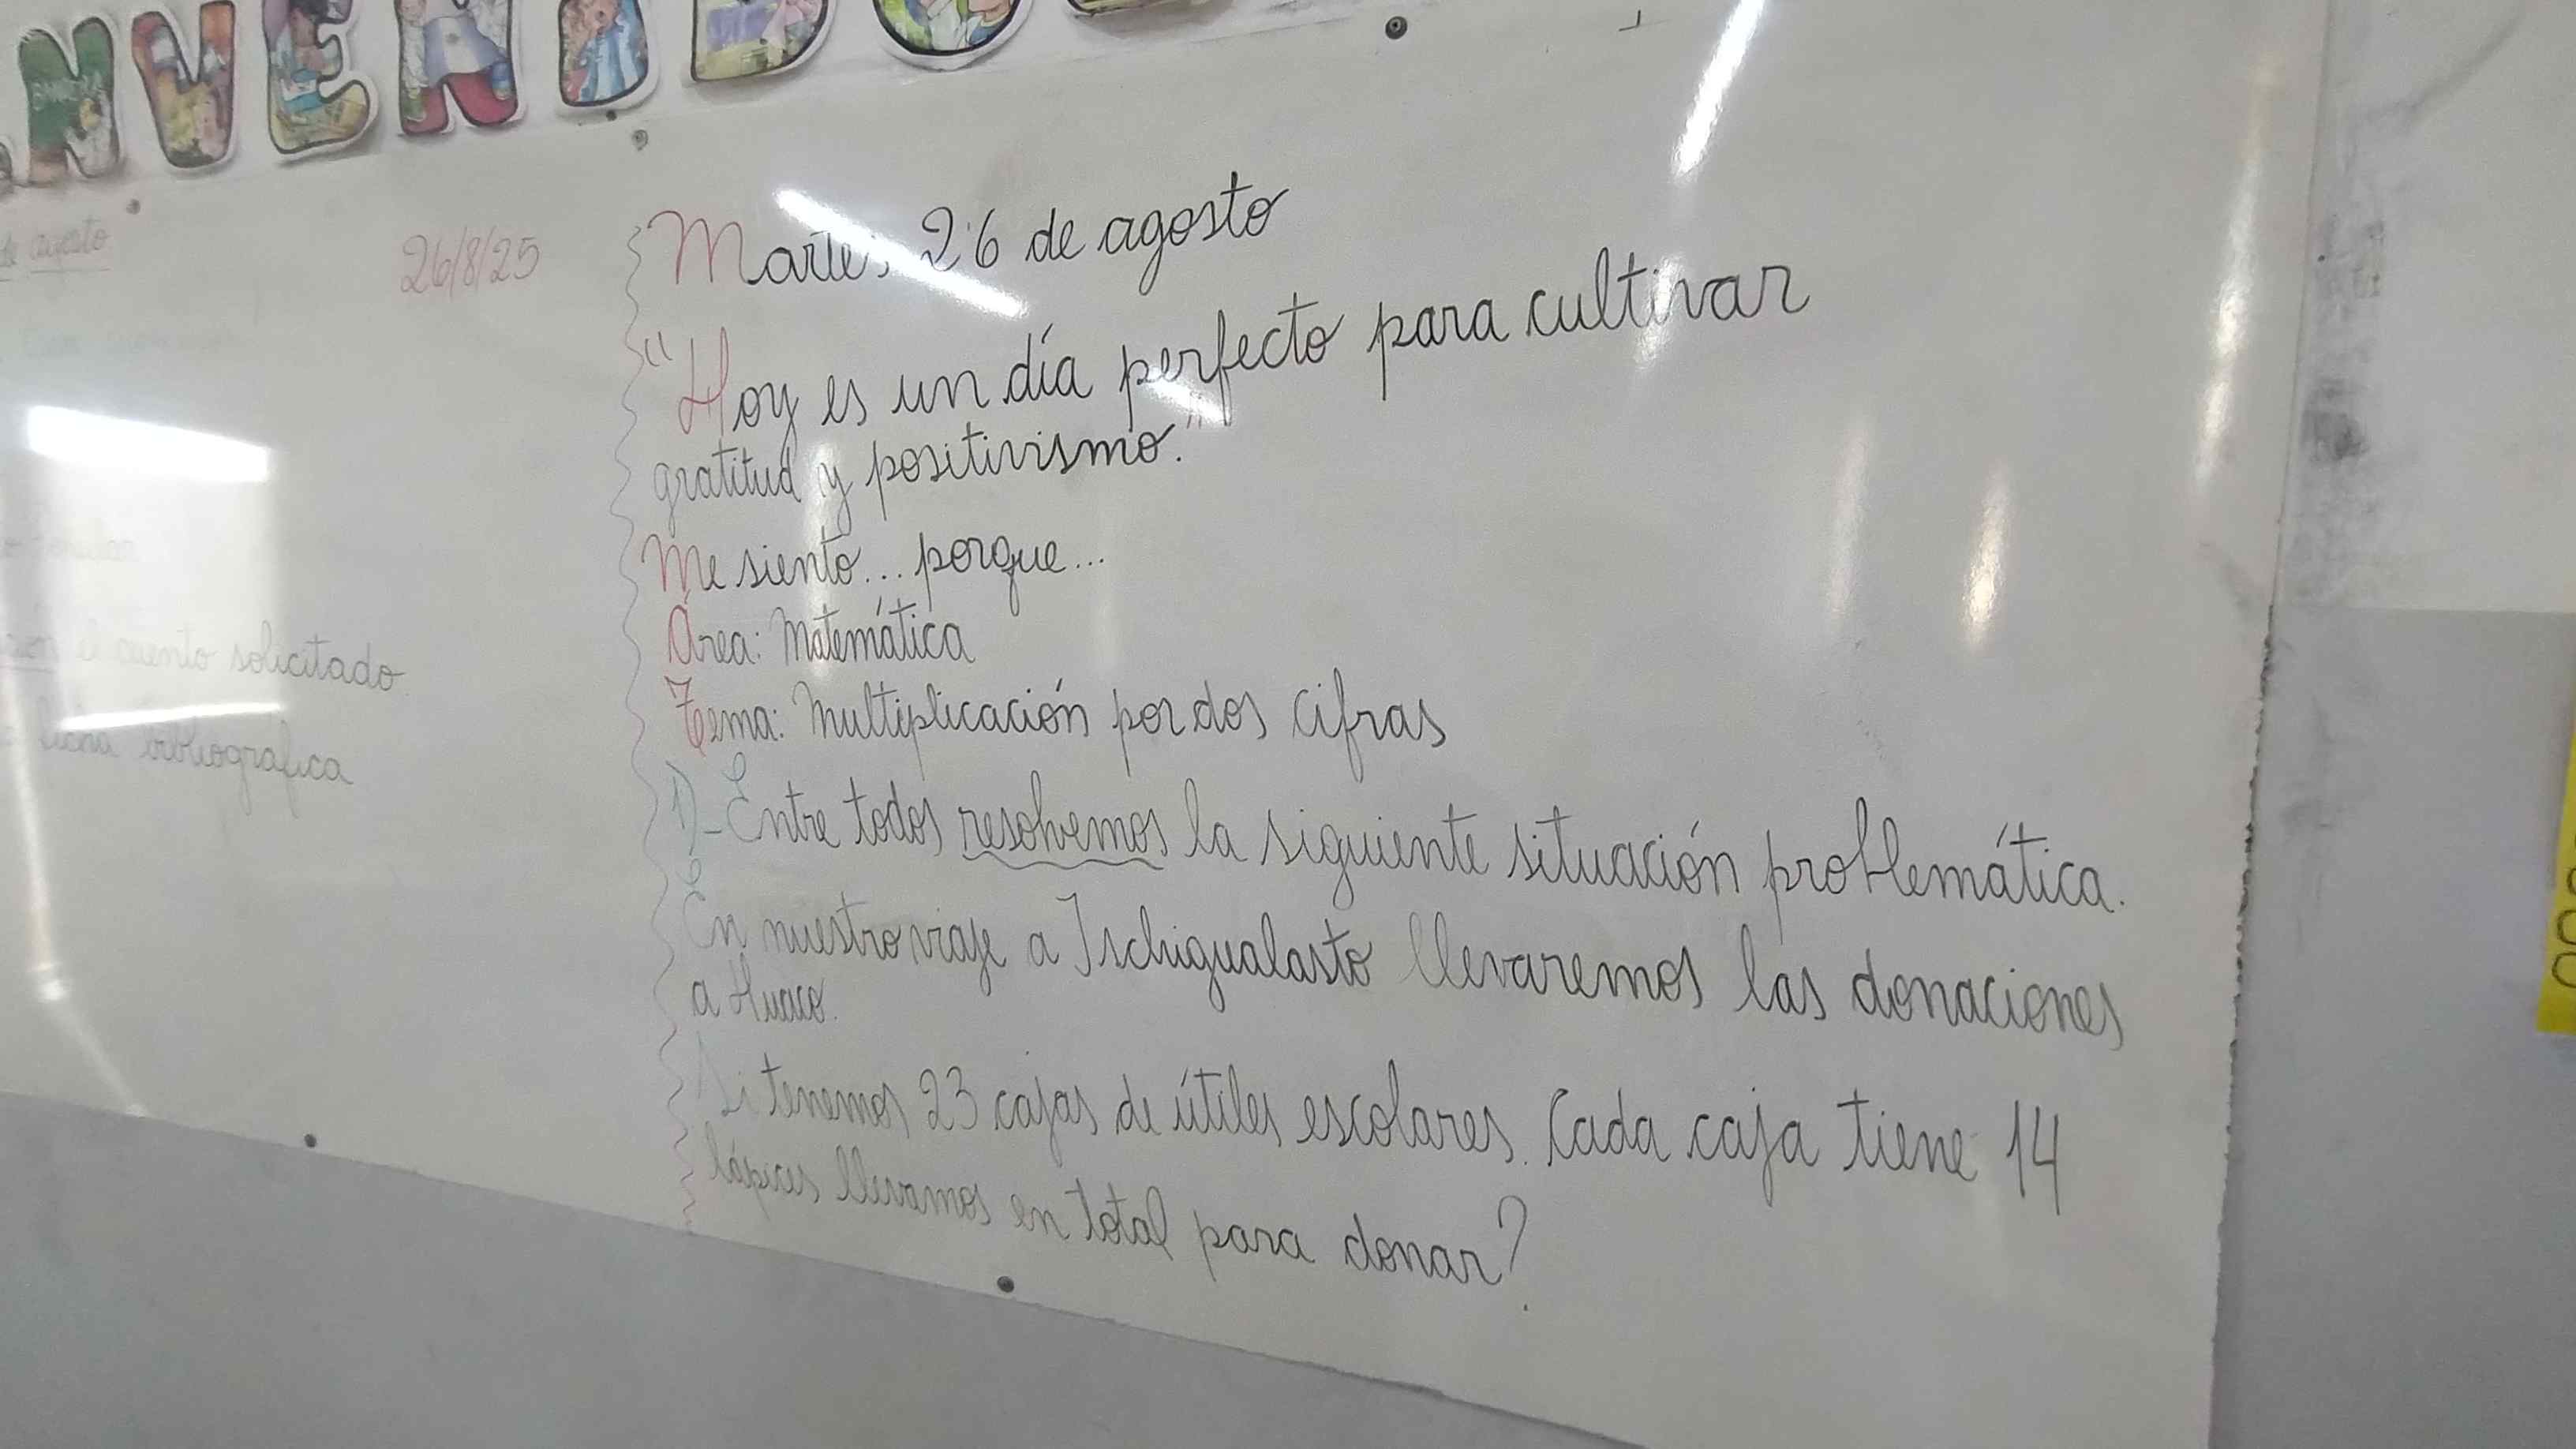 NVENIDOS
de agosto
26/8/25
el cuento solicitado
ficha bibliografica
Martes 26 de agosto
"Hoy es un día perfecto para cultivar
gratitud y positivismo."
Me siento... porque...
Área: Matemática
Tema: Multiplicación por dos cifras
1)_ Entre todos resolvemos la siguiente situación problemática.
En nuestro viaje a Ischigualasto llevaremos las donaciones
a Huaco.
Si tenemos 23 cajas de útiles escolares. Cada caja tiene 14
lápices llevamos en total para donar?